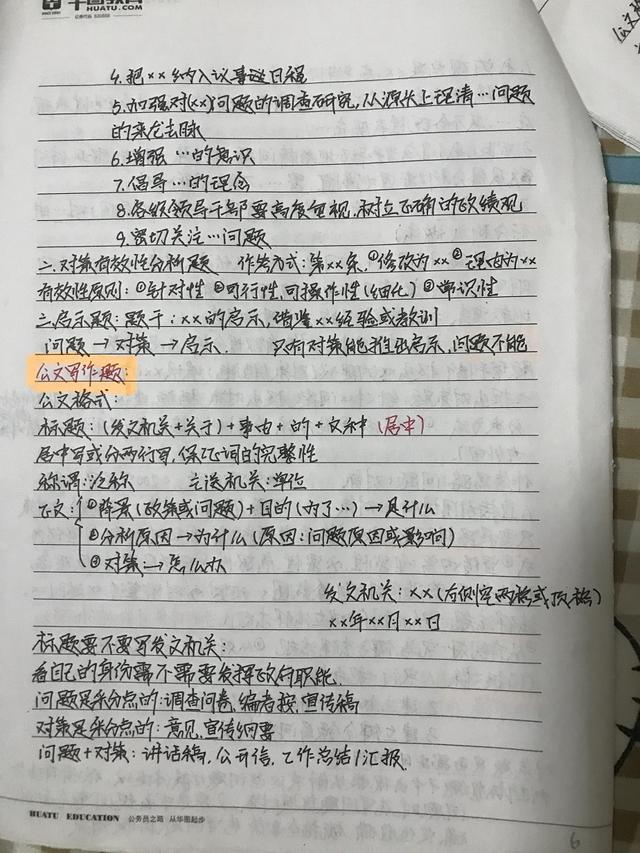 华图教育
HUATU.COM
4.把××纳入议事日程
5.加强对(××)问题的调查研究,从源头上理清…问题
的来龙去脉
6.增强…的意识
7.倡导…的理念
8.各级领导干部要高度重视,树立正确的政绩观
9.密切关注…问题
二.对策有效性分析题 作答方式:第××条,①修改为××②理由为××
有效性原则:①针对性②可行性,可操作性(细化)③常识性
三.启示题:题干:××的启示,借鉴××经验或教训
问题→对策→启示. 只有对策能推出启示,问题不能
公文写作题:
公文格式:
标题:(发文机关+关于)+事由+的+文种(居中)
居中写或分两行写,保证词的完整性
称谓:泛称 主送机关:单位
正文:①背景(政策或问题)+目的(为了…)→是什么
②分析原因→为什么(原因:问题原因或影响)
③对策→怎么办
发文机关:××(右侧空两格或顶格)
××年××月××日
标题要不要写发文机关:
看自己的身份需不需要发挥政府职能.
问题是采分点的:调查问卷,编者按,宣传稿
对策是采分点的:意见,宣传纲要
问题+对策:讲话稿,公开信,工作总结/汇报.
HUATU EDUCATION 公务员之路 从华图起步
6